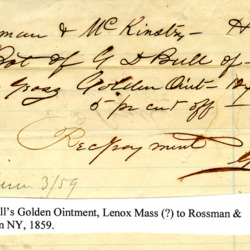 man & McKinstry H
Bot of G D Bull of
Gross Golden Oint–
5 pr cent off
Rec pay ment
3/59
ll's Golden Ointment, Lenox Mass (?) to Rossman &
n NY, 1859.